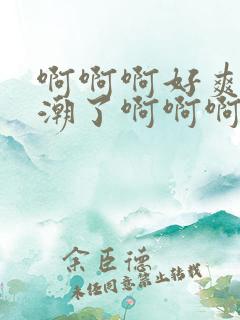 啊啊啊好爽
潮了啊啊啊
余臣德
未经同意禁止转载